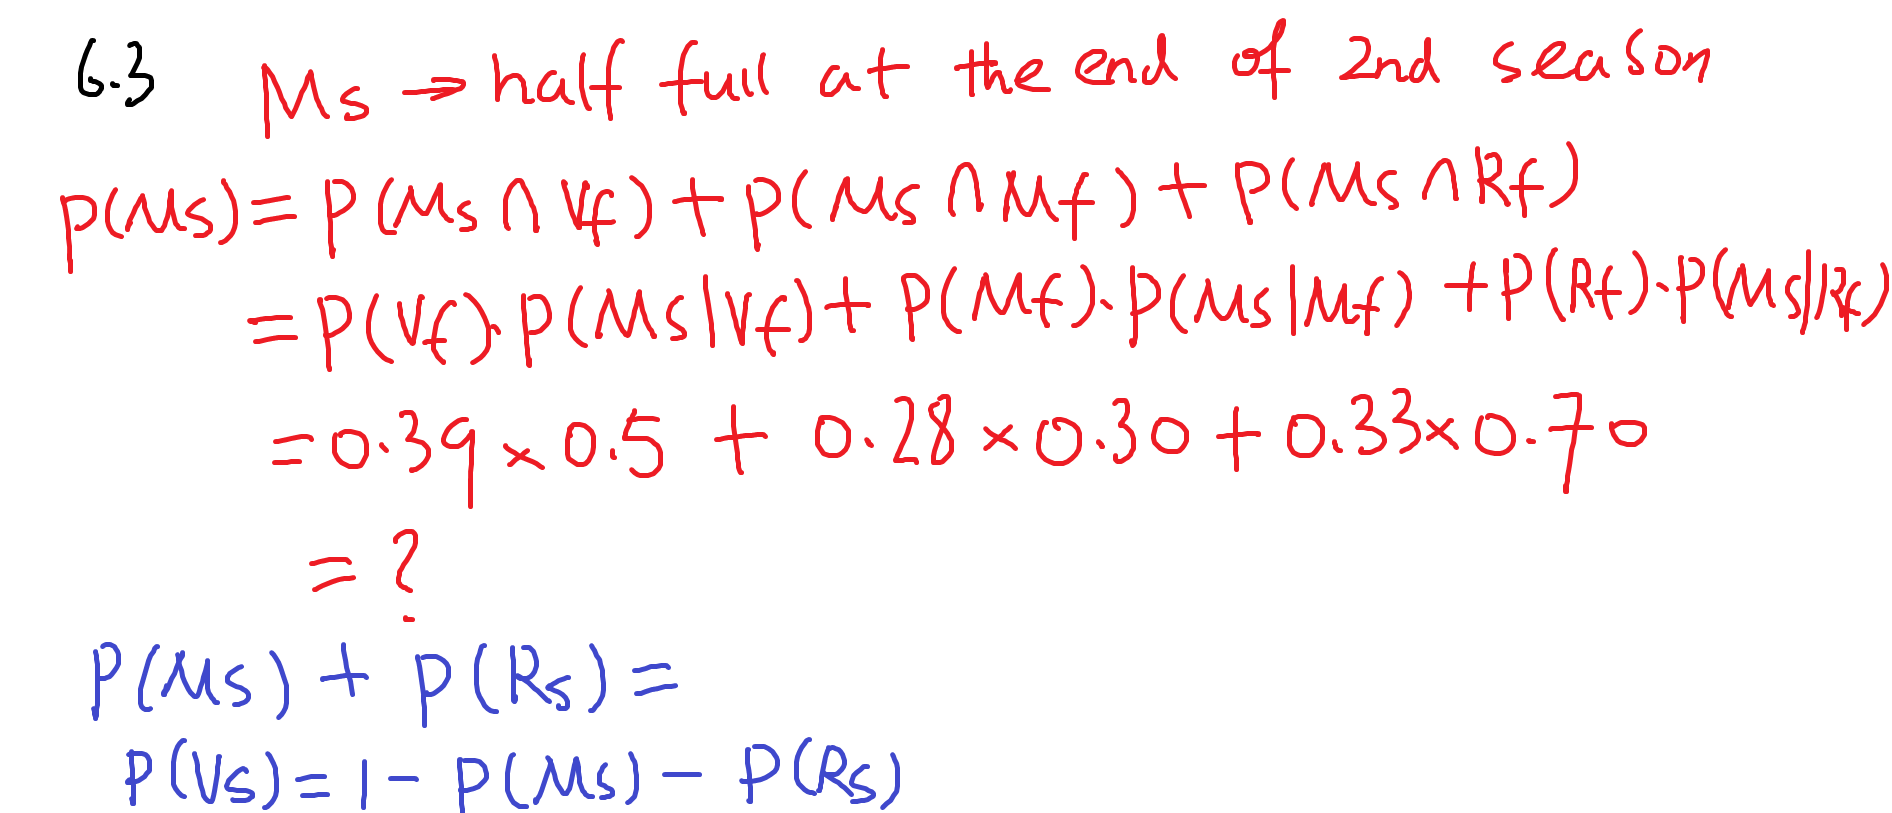 6.3 Ms → half full at the end of 2nd season
P(Ms) = P(Ms ∩ Vf) + P(Ms ∩ Mf) + P(Ms ∩ Rf)
= P(Vf)·P(Ms|Vf) + P(Mf)·P(Ms|Mf) + P(Rf)·P(Ms|Rf)
= 0.39 × 0.5 + 0.28 × 0.30 + 0.33 × 0.70
= ?
P(Ms) + P(Rs) =
P(Vs) = 1 - P(Ms) - P(Rs)